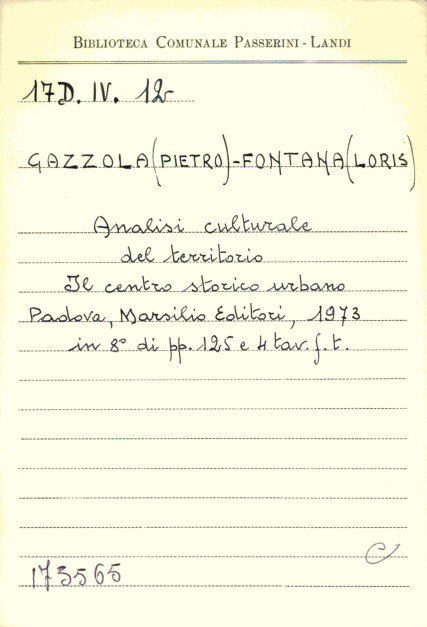 BIBLIOTECA COMUNALE PASSERINI-LANDI
17D. IV. 12
GAZZOLA (PIETRO)-FONTANA (LORIS)
Analisi culturale
del territorio
Il centro storico urbano
Padova, Marsilio Editori, 1973
in 8° di pp. 125 e 4 tav. f. t.
C
173565